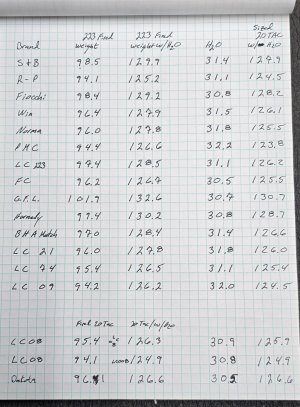 223 Fired 223 Fired Sized 20TAC
Brand weight weight w/H2O H2O w/ H2O
S+B 98.5 129.9 31.4 127.9
R-P 94.1 125.2 31.1 124.5
Fiocchi 98.4 129.2 30.8 128.2
Win 96.4 127.9 31.5 126.1
Norma 96.0 127.8 31.8 125.5
PMC 94.4 126.6 32.2 123.8
LC 223 97.4 128.5 31.1 126.2
FC 96.2 126.7 30.5 125.5
G.F.L. 101.9 132.6 30.7 130.7
Hornady 99.4 130.2 30.8 128.7
BHA Match 97.0 128.4 31.4 126.6
LC 21 96.0 127.8 31.8 126.0
LC 74 95.4 126.5 31.1 125.4
LC 09 94.2 126.2 32.0 124.5
Fired 20Tac 20 Tac/w/H2O
LC08 95.4 126.3 30.9 125.9
LC08 94.1 LC08 124.9 30.8 124.9
Dakota 96.1 126.6 30.5 126.6